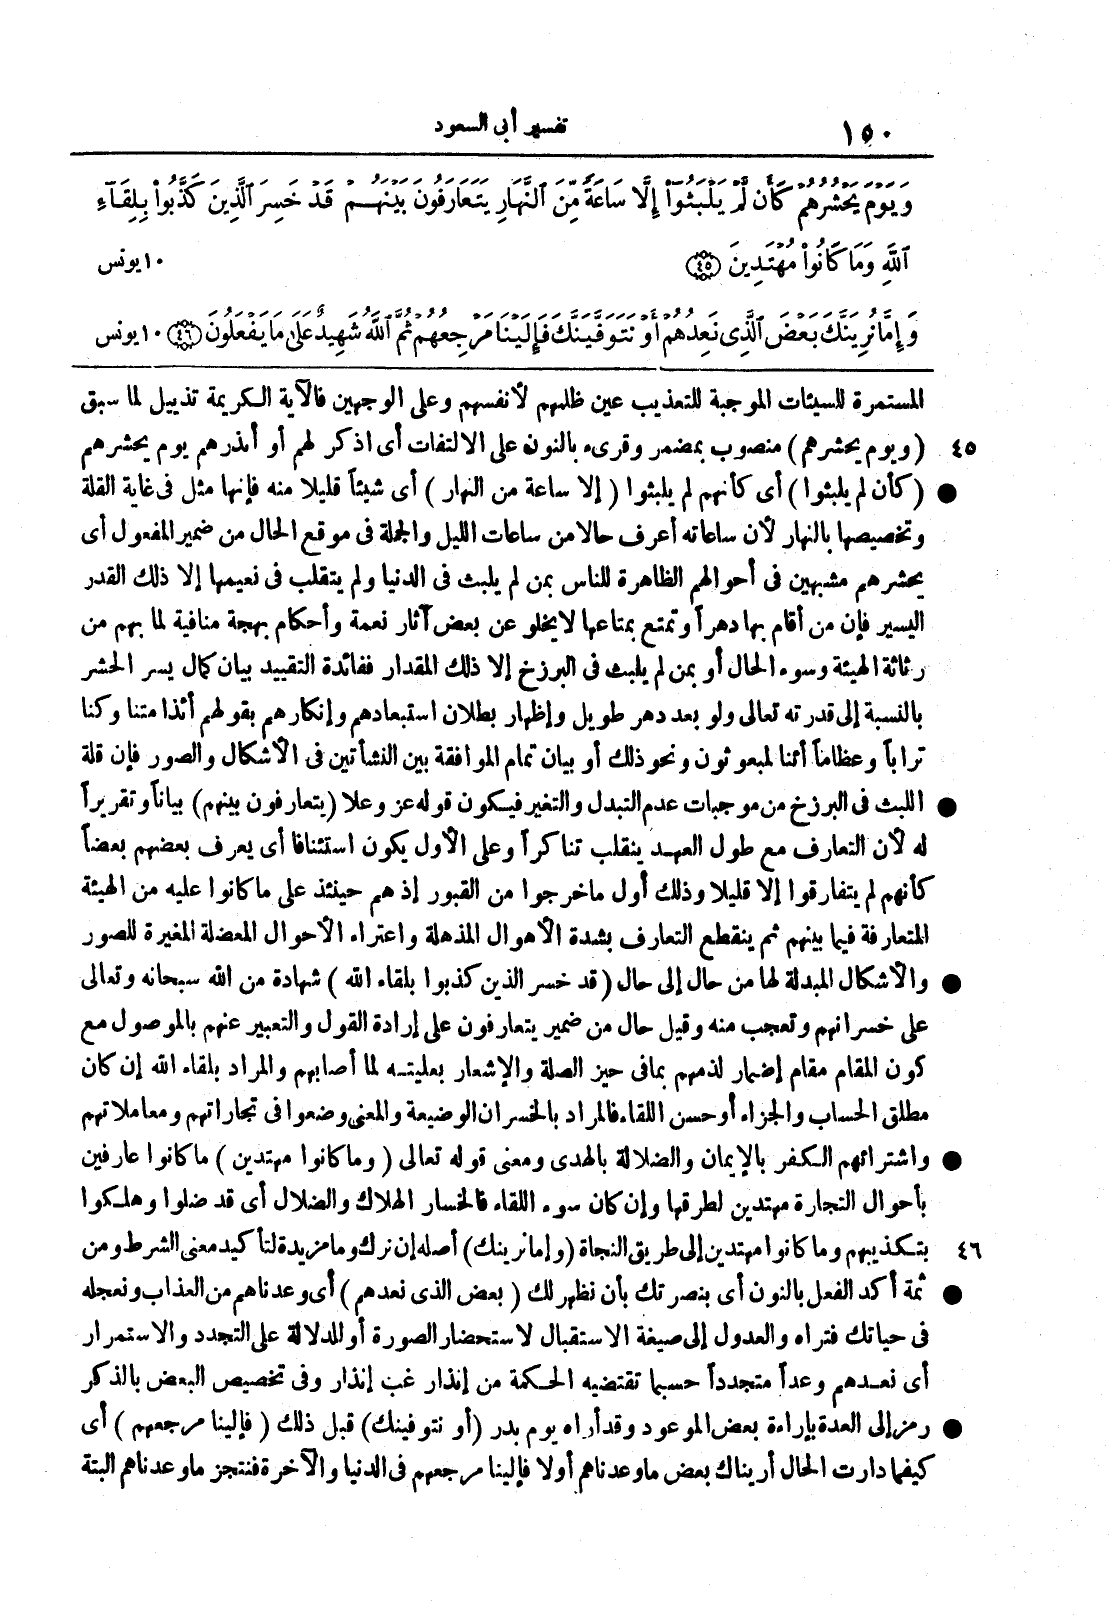 ١٥٠
تفسير أبى السعود
وَيَوْمَ يَحْشُرُهُمْ كَأَن لَّمْ يَلْبَثُوٓا۟ إِلَّا سَاعَةً مِّنَ ٱلنَّهَارِ يَتَعَارَفُونَ بَيْنَهُمْ قَدْ خَسِرَ ٱلَّذِينَ كَذَّبُوا۟ بِلِقَآءِ
ٱللَّهِ وَمَا كَانُوا۟ مُهْتَدِينَ ٤٥ ١٠ يونس
وَإِمَّا نُرِيَنَّكَ بَعْضَ ٱلَّذِى نَعِدُهُمْ أَوْ نَتَوَفَّيَنَّكَ فَإِلَيْنَا مَرْجِعُهُمْ ثُمَّ ٱللَّهُ شَهِيدٌ عَلَىٰ مَا يَفْعَلُونَ ٤٦ ١٠ يونس
المستمرة للسيئات الموجبة للتعذيب عين ظلمهم لأنفسهم وعلى الوجهين فالآية الكريمة تذييل لما سبق
٤٥ (ويوم يحشرهم) منصوب بمضمر وقرىء بالنون على الالتفات أى اذكر لهم أو أنذرهم يوم يحشرهم
● (كأن لم يلبثوا) أى كأنهم لم يلبثوا (إلا ساعة من النهار) أى شيئاً قليلا منه فإنها مثل فى غاية القلة
وتخصيصها بالنهار لأن ساعاته أعرف حالا من ساعات الليل والجملة فى موقع الحال من ضمير المفعول أى
يحشرهم مشبهين فى أحوالهم الظاهرة للناس بمن لم يلبث فى الدنيا ولم يتقلب فى نعيمها إلا ذلك القدر
اليسير فإن من أقام بها دهراً وتمتع بمتاعها لا يخلو عن بعض آثار نعمة وأحكام بهجة منافية لما بهم من
رثاثة الهيئة وسوء الحال أو بمن لم يلبث فى البرزخ إلا ذلك المقدار ففائدة التقييد بيان كمال يسر الحشر
بالنسبة إلى قدرته تعالى ولو بعد دهر طويل وإظهار بطلان استبعادهم وإنكارهم بقولهم أئذا متنا وكنا
تراباً وعظاماً أئنا لمبعوثون ونحو ذلك أو بيان تمام الموافقة بين النشأتين فى الأشكال والصور فإن قلة
● اللبث فى البرزخ من موجبات عدم التبدل والتغير فيكون قوله عز وعلا (يتعارفون بينهم) بياناً وتقريراً
له لأن التعارف مع طول العهد ينقلب تناكراً وعلى الأول يكون استئنافا أى يعرف بعضهم بعضاً
كأنهم لم يتفارقوا إلا قليلا وذلك أول ما خرجوا من القبور إذ هم حينئذ على ما كانوا عليه من الهيئة
المتعارفة فيما بينهم ثم ينقطع التعارف بشدة الأهوال المذهلة واعتراء الأحوال المعضلة المغيرة للصور
● والأشكال المبدلة لها من حال إلى حال (قد خسر الذين كذبوا بلقاء الله) شهادة من الله سبحانه وتعالى
على خسرانهم وتعجب منه وقيل حال من ضمير يتعارفون على إرادة القول والتعبير عنهم بالموصول مع
كون المقام مقام إضمار لذمهم بما فى حيز الصلة والإشعار بعليته لما أصابهم والمراد بلقاء الله إن كان
مطلق الحساب والجزاء أو حسن اللقاء فالمراد بالخسران الوضيعة والمعنى وضعوا فى تجاراتهم ومعاملاتهم
● واشترائهم الكفر بالإيمان والضلالة بالهدى ومعنى قوله تعالى (وما كانوا مهتدين) ما كانوا عارفين
بأحوال التجارة مهتدين لطرقها وإن كان سوء اللقاء فالخسار الهلاك والضلال أى قد ضلوا وهلكوا
٤٦ بتكذيبهم وما كانوا مهتدين إلى طريق النجاة (وإما نرينك) أصله إن نرك وما مزيدة لتأكيد معنى الشرط ومن
● ثمة أكد الفعل بالنون أى بنصرتك بأن نظهر لك (بعض الذى نعدهم) أى وعدناهم من العذاب ونعجله
فى حياتك فتراه والعدول إلى صيغة الاستقبال لاستحضار الصورة أو للدلالة على التجدد والاستمرار
أى نعدهم وعداً متجدداً حسبما تقتضيه الحكمة من إنذار غب إنذار وفى تخصيص البعض بالذكر
● رمز إلى العدة بإراءة بعض الموعود وقد أراه يوم بدر (أو نتوفينك) قبل ذلك (فإلينا مرجعهم) أى
كيفما دارت الحال أريناك بعض ما وعدناهم أولا فإلينا مرجعهم فى الدنيا والآخرة فننجز ما وعدناهم البتة